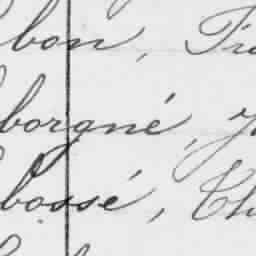 bon, Fra
borgné, J
bossé, Ch